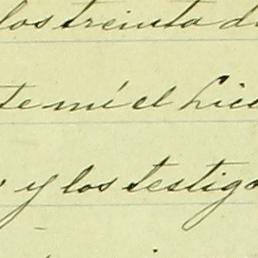 los treinta d
te mí el Lice
y los testigo